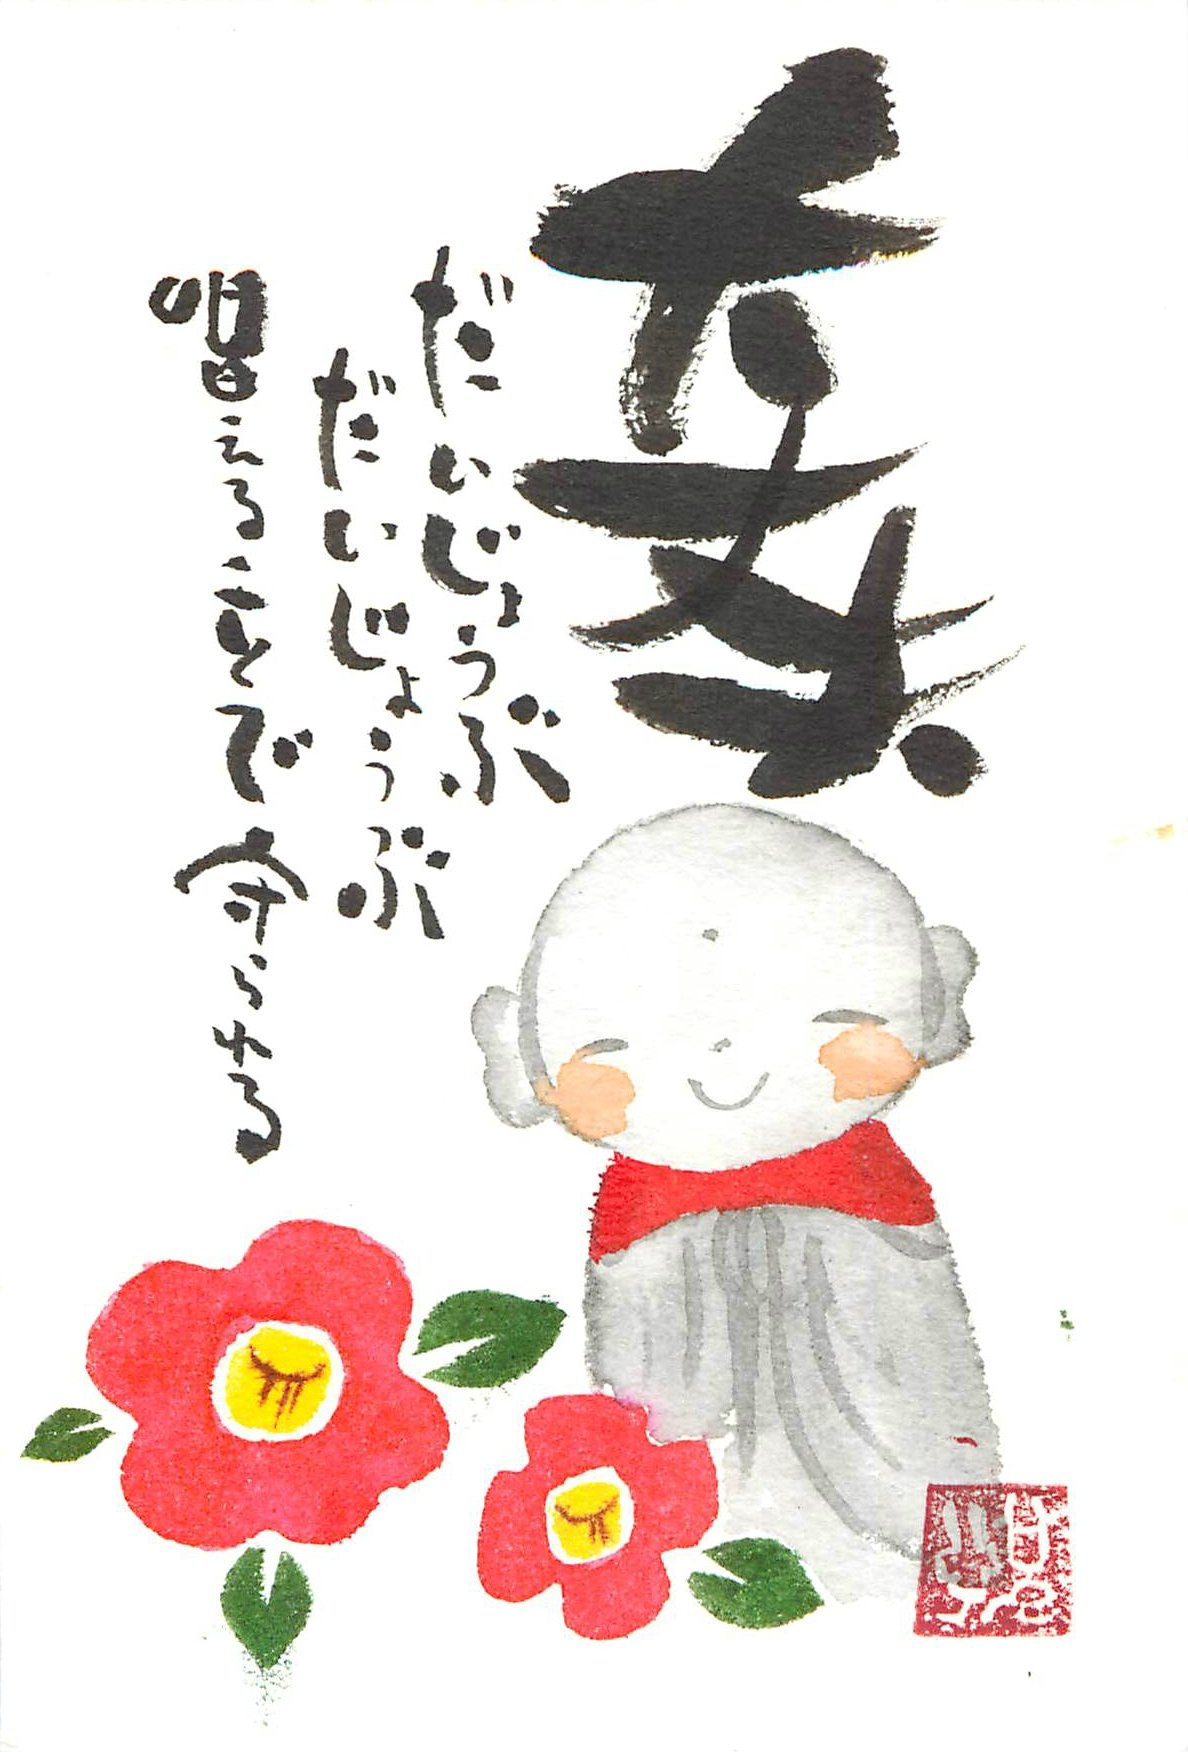 だいじょうぶ
だいじょうぶ
唱えることで守られる